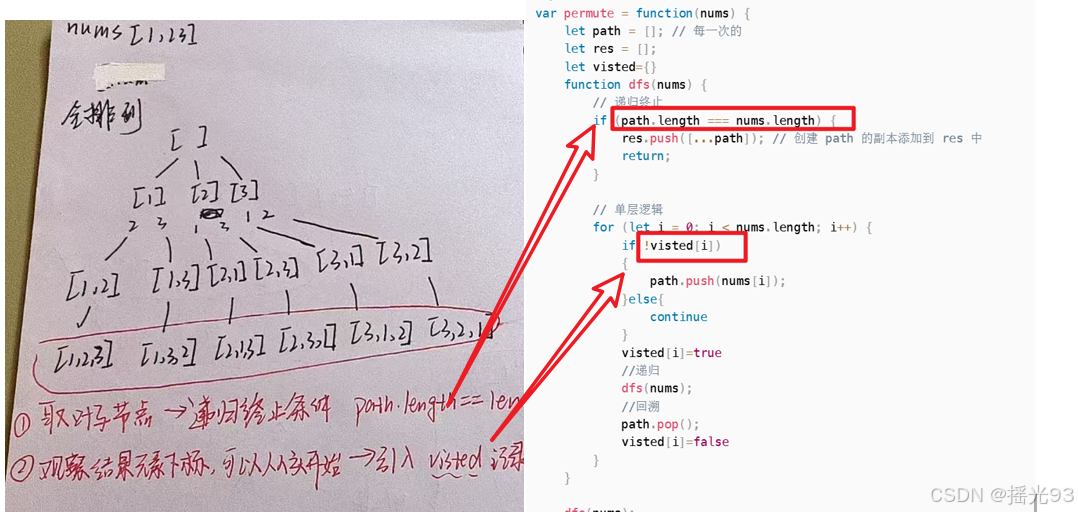 nums [1,23]
全排列
[ ]
[1] [2] [3]
2 3 1 3 1 2
[1,2] [1,3] [2,1] [2,3] [3,1] [3,2]
[1,2,3] [1,3,2] [2,1,3] [2,3,1] [3,1,2] [3,2,1]
① 取叶子节点 → 递归终止条件 path.length == len
② 观察结果元素下标,可以从头开始 → 引入 visted 记录
var permute = function(nums) {
let path = []; // 每一次的
let res = [];
let visted={}
function dfs(nums) {
// 递归终止
if (path.length === nums.length) {
res.push([...path]); // 创建 path 的副本添加到 res 中
return;
}
// 单层逻辑
for (let i = 0; i < nums.length; i++) {
if !visted[i])
{
path.push(nums[i]);
}else{
continue
}
visted[i]=true
//递归
dfs(nums);
//回溯
path.pop();
visted[i]=false
}
}
dfs(nums);
CSDN @摇光93